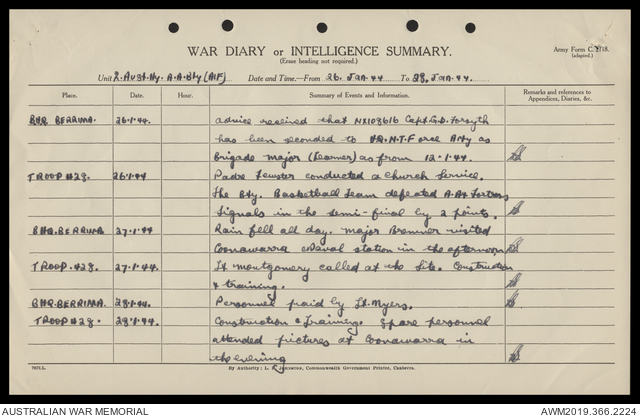 WAR DIARY or INTELLIGENCE SUMMARY.
(Erase heading not required.)
Army Form C.2118.
(adapted.)
Unit 2. Aust. Hy. A.A. Bty (AIF) Date and Time.—From 26. Jan. 44 To 28. Jan. 44.
Place. Date. Hour. Summary of Events and Information. Remarks and references to Appendices, Diaries, &c.
BHQ BERRIMA. 26.1.44. Advice received that NX103616 Capt. G.D. Forsyth
has been seconded to HQ. N.T. Force Arty as
Brigade Major (Learner) as from 12.1.44.
TROOP 428. 26.1.44 Padre Fewster conducted a Church Service.
The Bty. Basketball Team defeated A.A. Fortress
Signals in the semi-final by 2 points.
BHQ. BERRIMA 27.1.44 Rain fell all day. Major Bremner visited
Coonawarra Naval station in the afternoon
TROOP. 428. 27.1.44. Lt Montgomery called at the Site. Construction
& training.
BHQ. BERRIMA. 28.1.44. Personnel paid by Lt. Myers.
TROOP 428. 28.1.44. Construction & Training. Spare personnel
attended pictures at Coonawarra in
the evening
By Authority: L. F. Johnston, Commonwealth Government Printer, Canberra.
AUSTRALIAN WAR MEMORIAL
AWM2019.366.2224